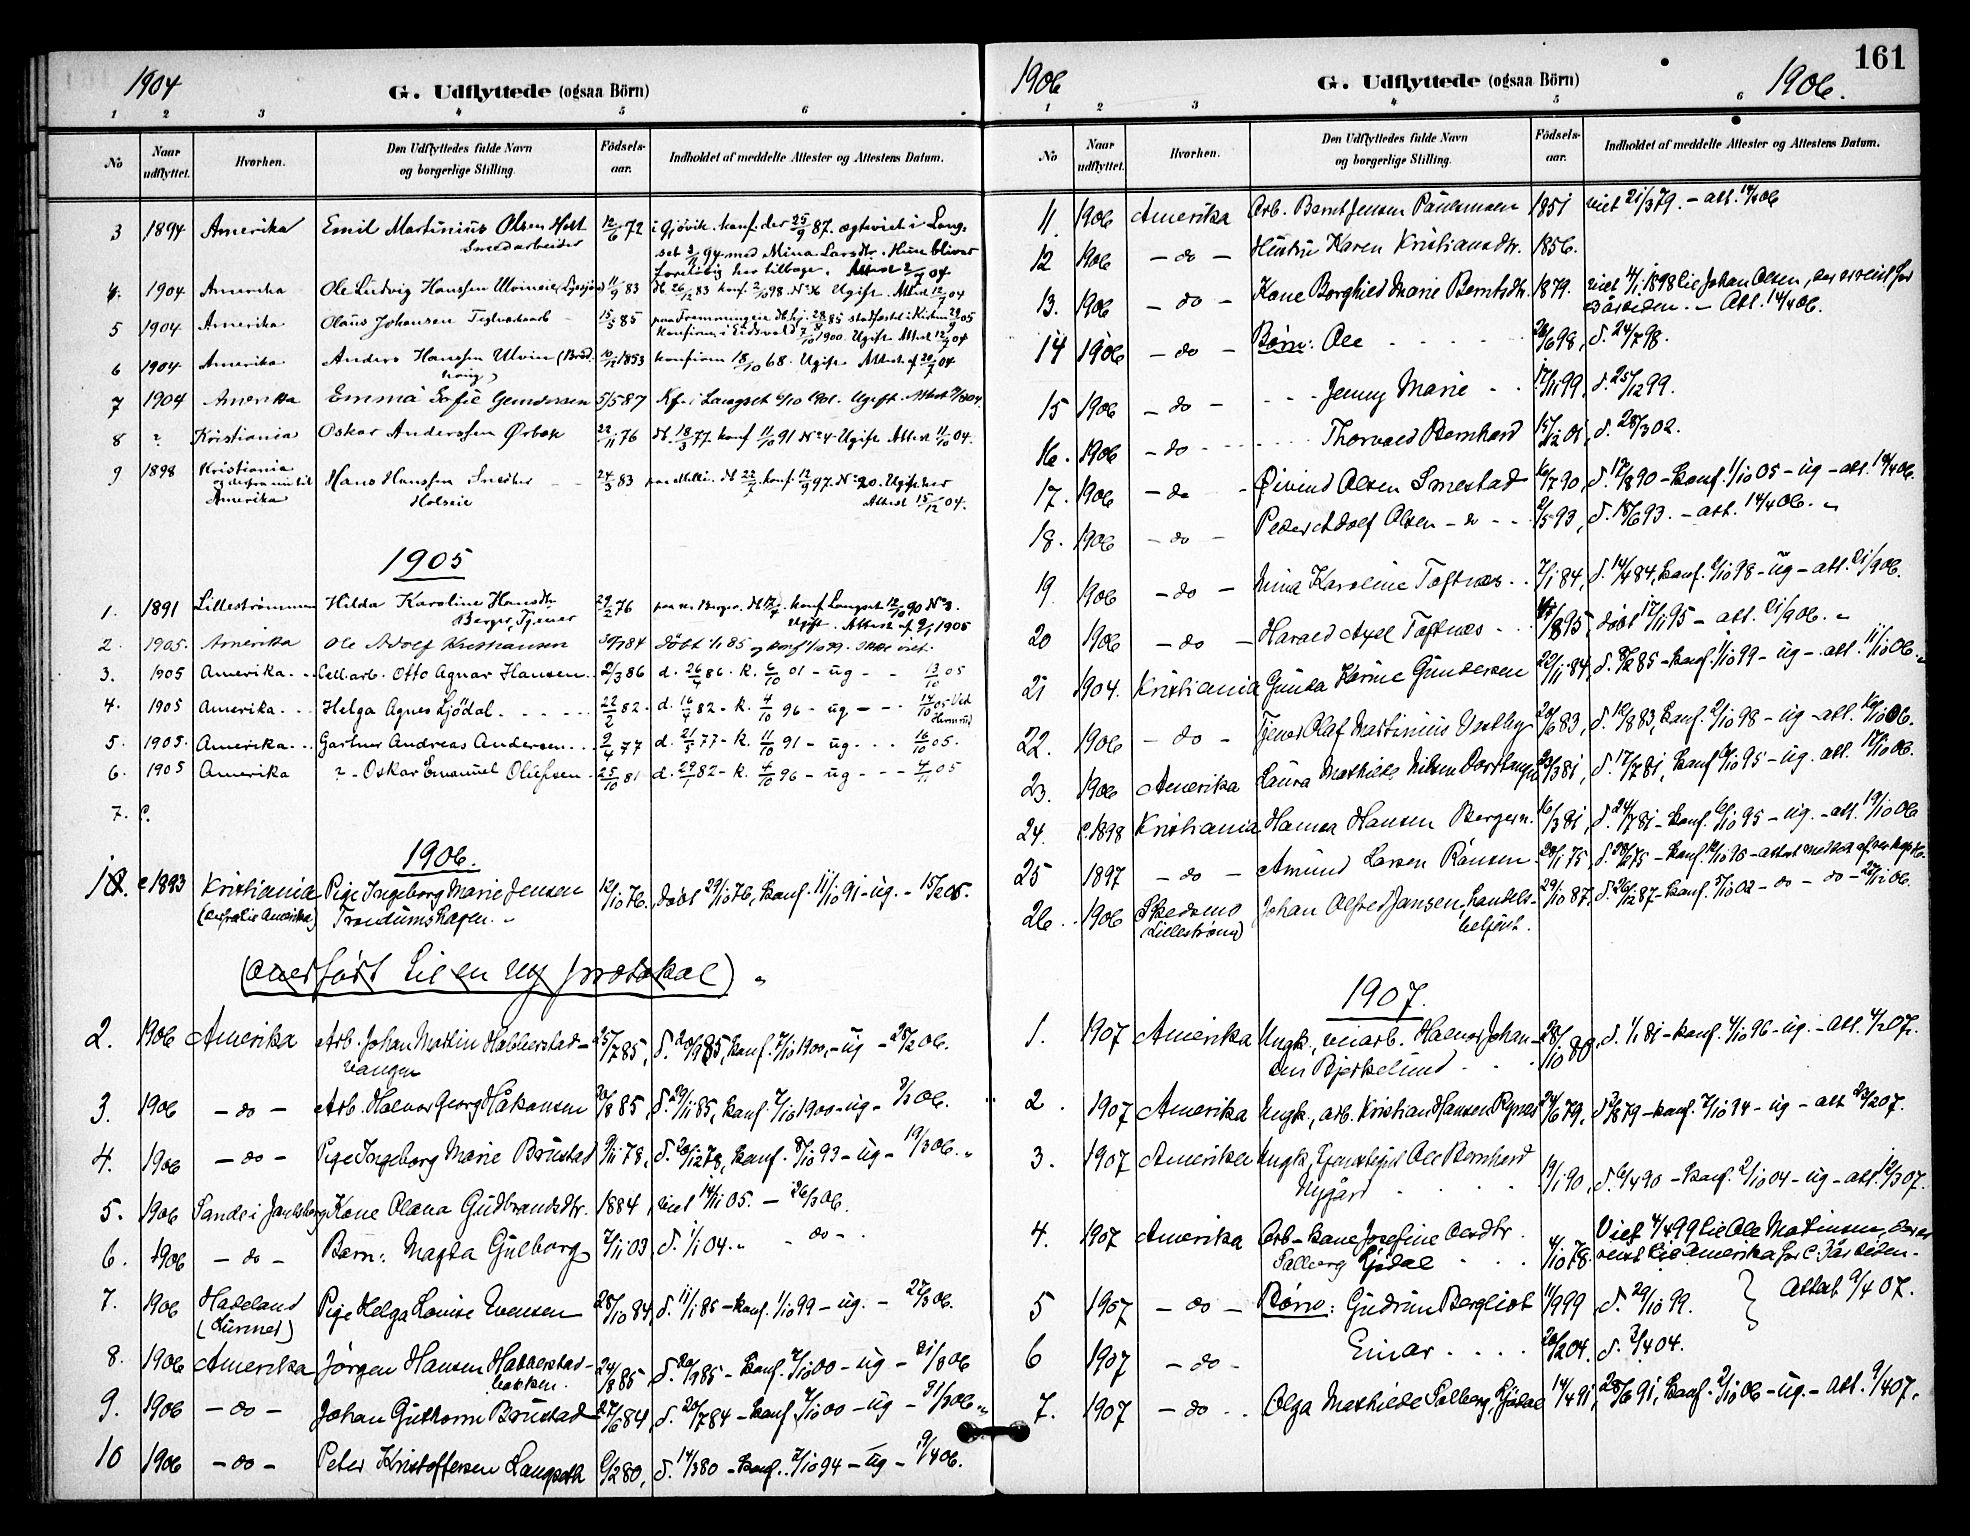 1904
G. Udflyttede (ogsaa Börn)
1 2 3 4 5 6
No Naar udflyttet. Hvorhen. Den Udflyttedes fulde Navn og borgerlige Stilling. Födsels-aar. Indholdet af meddelte Attester og Attestens Datum.
3 1894 Amerika Emil Martinius Olsen 12/6 72 i Gjövik. konf. der 25/9 87. ægteviet i Lang-
set 94 med Mina Larsdtr. Hun bliver
foreløbig her tilbage. Attest 04
4. 1904 Amerika Ole Ludvig Hanssen 11/9 83 26/12 83 konf. 2/10 98. Ugift. Attest 12/7 04
5 1904 Amerika Olaus Johansen 15/5 85
konfirm. i Eidsvold 1900. Ugift. Attest 12/7 04
6 1904 Amerika Anders Hanssen Ulvin 1853 konfirm 18/10 68. Ugift. Attest af 20/7 04
7 1904 Amerika Emma Sofie Gundersen 5/5 87 Kf. i Langset Ugift. Attest
8 ? Kristiania Oskar Anderssen Ørbæk 22/11 76 db. 18/3 77. konf 11/10 91 No 4. Ugift. Attest 11/10 04.
9 1898 Kristiania
Amerika Hans Hanssen 24/3 83 konf. 12/9 97. No 20. Ugift.
Attest 15/12 04.
1905
1. 1891 Lillestrømmen Hilda Karoline Hansdtr. 29/2 76 konf Langset 12/10 90 No 3.
Berger, Tjener Ugift. Attest af 9/1 1905
2. 1905. Amerika Ole Adolf Kristiansen döbt
3. 1905 Amerika Cell.arb. Otto Agnar Hansen 2/3 86 d. 26/4 86. k. 6/10 01 - ug - - 13/10 05
4. 1905 Amerika Helga Agnes Ljödal 22/2 82 - d. 16/4 82 - k. 4/10 96 - ug - - 14/10 05
5. 1905. Amerika Gartner Andreas Andersen 2/4 77 d. 21/5 77 - k. 11/10 91 - ug. 16/10 05.
6. 1905 Amerika ? - Oskar Emanuel Olufsen 25/10 81 d. 29/1 82 - k. 4/10 96 - ug - - 4/11 05
7. C.
1906.
1. c 1893 Kristiania Pige Ingeborg Marie Jensen 12/10 76. döbt 29/10 76, konf. 11/10 91 - ug. - 15/2 05.
Trondumshagen.
(overfört til en ny protokol)
2. 1906 Amerika Arb. Johan Martin Habberstad- 25/7 85, d. 20/9 85, konf. 7/10 1900, - ug - 28/2 06.
vangen
3. 1906 - do - Arb. Halvor Georg Håkansen 20/8 85, d. 29/11 85, konf. 7/10 1900 - ug -
4. 1906 - do - Pige Ingeborg Marie Brustad 9/11 78, d. 26/12 78, konf. 8/10 93 - ug - 19/3 06.
5. 1906 Sande i Jarlsberg Kone Olana Gudbrandsdtr. 1884, viet 14/11 05. - 26/3 06.
6. 1906 - do - Barn: Magda Gulborg 7/11 03, d. 1/1 04. - do -
7. 1906 Hadeland
(Lunner) Pige Helga Louise Evensen 28/10 84, d. 11/1 85 - konf. 1/10 99 - ug. - 27/3 06.
8. 1906 Amerika Jörgen Hansen Habberstad- 24/8 85 d. 20/9 85 - konf. 7/10 00 - ug - 31/3 06
bakken.
9. 1906 - do - Johan Guthorm Brustad 27/6 84, d. 20/7 84 - konf. 7/10 00 - ug - 31/3 06
10 1906 - do - Peter Kristoffersen Langseth 6/2 80, d. 14/3 80 - konf. 7/10 94 - ug - 9/4 06.
1906
G. Udflyttede (ogsaa Börn)
1906.
161
1 2 3 4 5 6
No Naar udflyttet. Hvorhen. Den Udflyttedes fulde Navn og borgerlige Stilling. Födsels-aar. Indholdet af meddelte Attester og Attestens Datum.
11. 1906 Amerika Arb. Bernt Jensen Paulsmoen 1851 viet 21/3 79. - att. 14/4 06
12 1906 - do - Hustru Karen Kristiansdtr. 1856.
13. 1906 - do - Kone Borghild Marie Berntsdtr. 1879. viet 1898 til Johan Olsen, der er reist for
år siden. - Att. 14/4 06.
14 1906 - do - Børn: Ole 26/6 98, d. 24/7 98.
15 1906 - do - Jenny Marie 17/11 99, d. 25/12 99.
16. 1906 - do - Thorvald Bernhard 15/12 01, d. 28/3 02.
17. 1906 - do - Øivind Olsen Smestad 16/7 90, d. 17/8 90 - konf. 1/10 05 - ug - att. 14/4 06.
18. 1906 - do - Peder Adolf Olsen - do - 2/5 93, d. 18/6 93. - att. 14/4 06.
19. 1906 - do - Mina Karoline Toftnæs 7/1 84, d. 14/4 84, konf. 2/10 98 - ug - att. 21/9 06.
20 1906 - do - Harald Axel Toftnæs 95, döbt 17/11 95 - att. 21/9 06.
21 1904. Kristiania Gunda Karine Gundersen 22/11 84, d. 85 - konf. 1/10 99 - ug - att. 11/10 06.
22. 1906 - do - Tjener Olaf Martinius Vestby 83, d. 12/8 83, konf. 2/10 98 - ug - att. 16/10 06.
23. 1906 Amerika Laura Mathilde Nilsen 81, d. 17/7 81, konf. 6/10 95 - ug. att. 17/10 06.
24. c. 1898 Kristiania Hansen Bergern. 16/3 81, d. 24/7 81 - konf. 6/10 95 - ug. - att. 19/10 06
25 1897 - do - Amund Larsen Rånsen 28/1 75, d. 75 - konf. 12/10 90 - attest
26. 1906 Skedsmo
(Lillestrøm) Johan Alfred Jansen, handels-
betjent. 29/10 87, d. 26/12 87 - konf. 5/10 02 - do - do - 06.
1907.
1. 1907 Amerika Ungk., veiarb. Halvor Johan- 28/10 80, d. 1/1 81 - konf. 4/10 96 - ug. - att. 4/2 07.
sen Bjerkelund
2. 1907 Amerika Ungk., arb. Kristian Hansen 24/6 79, d. 3/8 79 - konf. 7/10 94 - ug - att 23/2 07.
3. 1907 Amerika Ungk., Ole Bernhard
Nygård 19/1 90, d. 6/4 90 - konf. 2/10 04 - ug - att. 12/3 07.
4. 1907 Amerika Arb-kone Josefine Olsdtr.
Solberg Ljödal 4/10 78. Viet 4/4 99 til Ole Martinsen, der er
reist til Amerika for c. 1 år siden.
5 1907 - do - Børn: Gudrun Bergliot 11/9 99 d. 29/10 99. Attest 9/4 07.
6 1907 - do - Einar 20/2 04. d. 3/4 04.
7. 1907 - do - Olga Mathilde Solberg, Ljödal 14/4 91, 28/6 91, konf. 7/10 06 - ug. - att. 9/4 07.